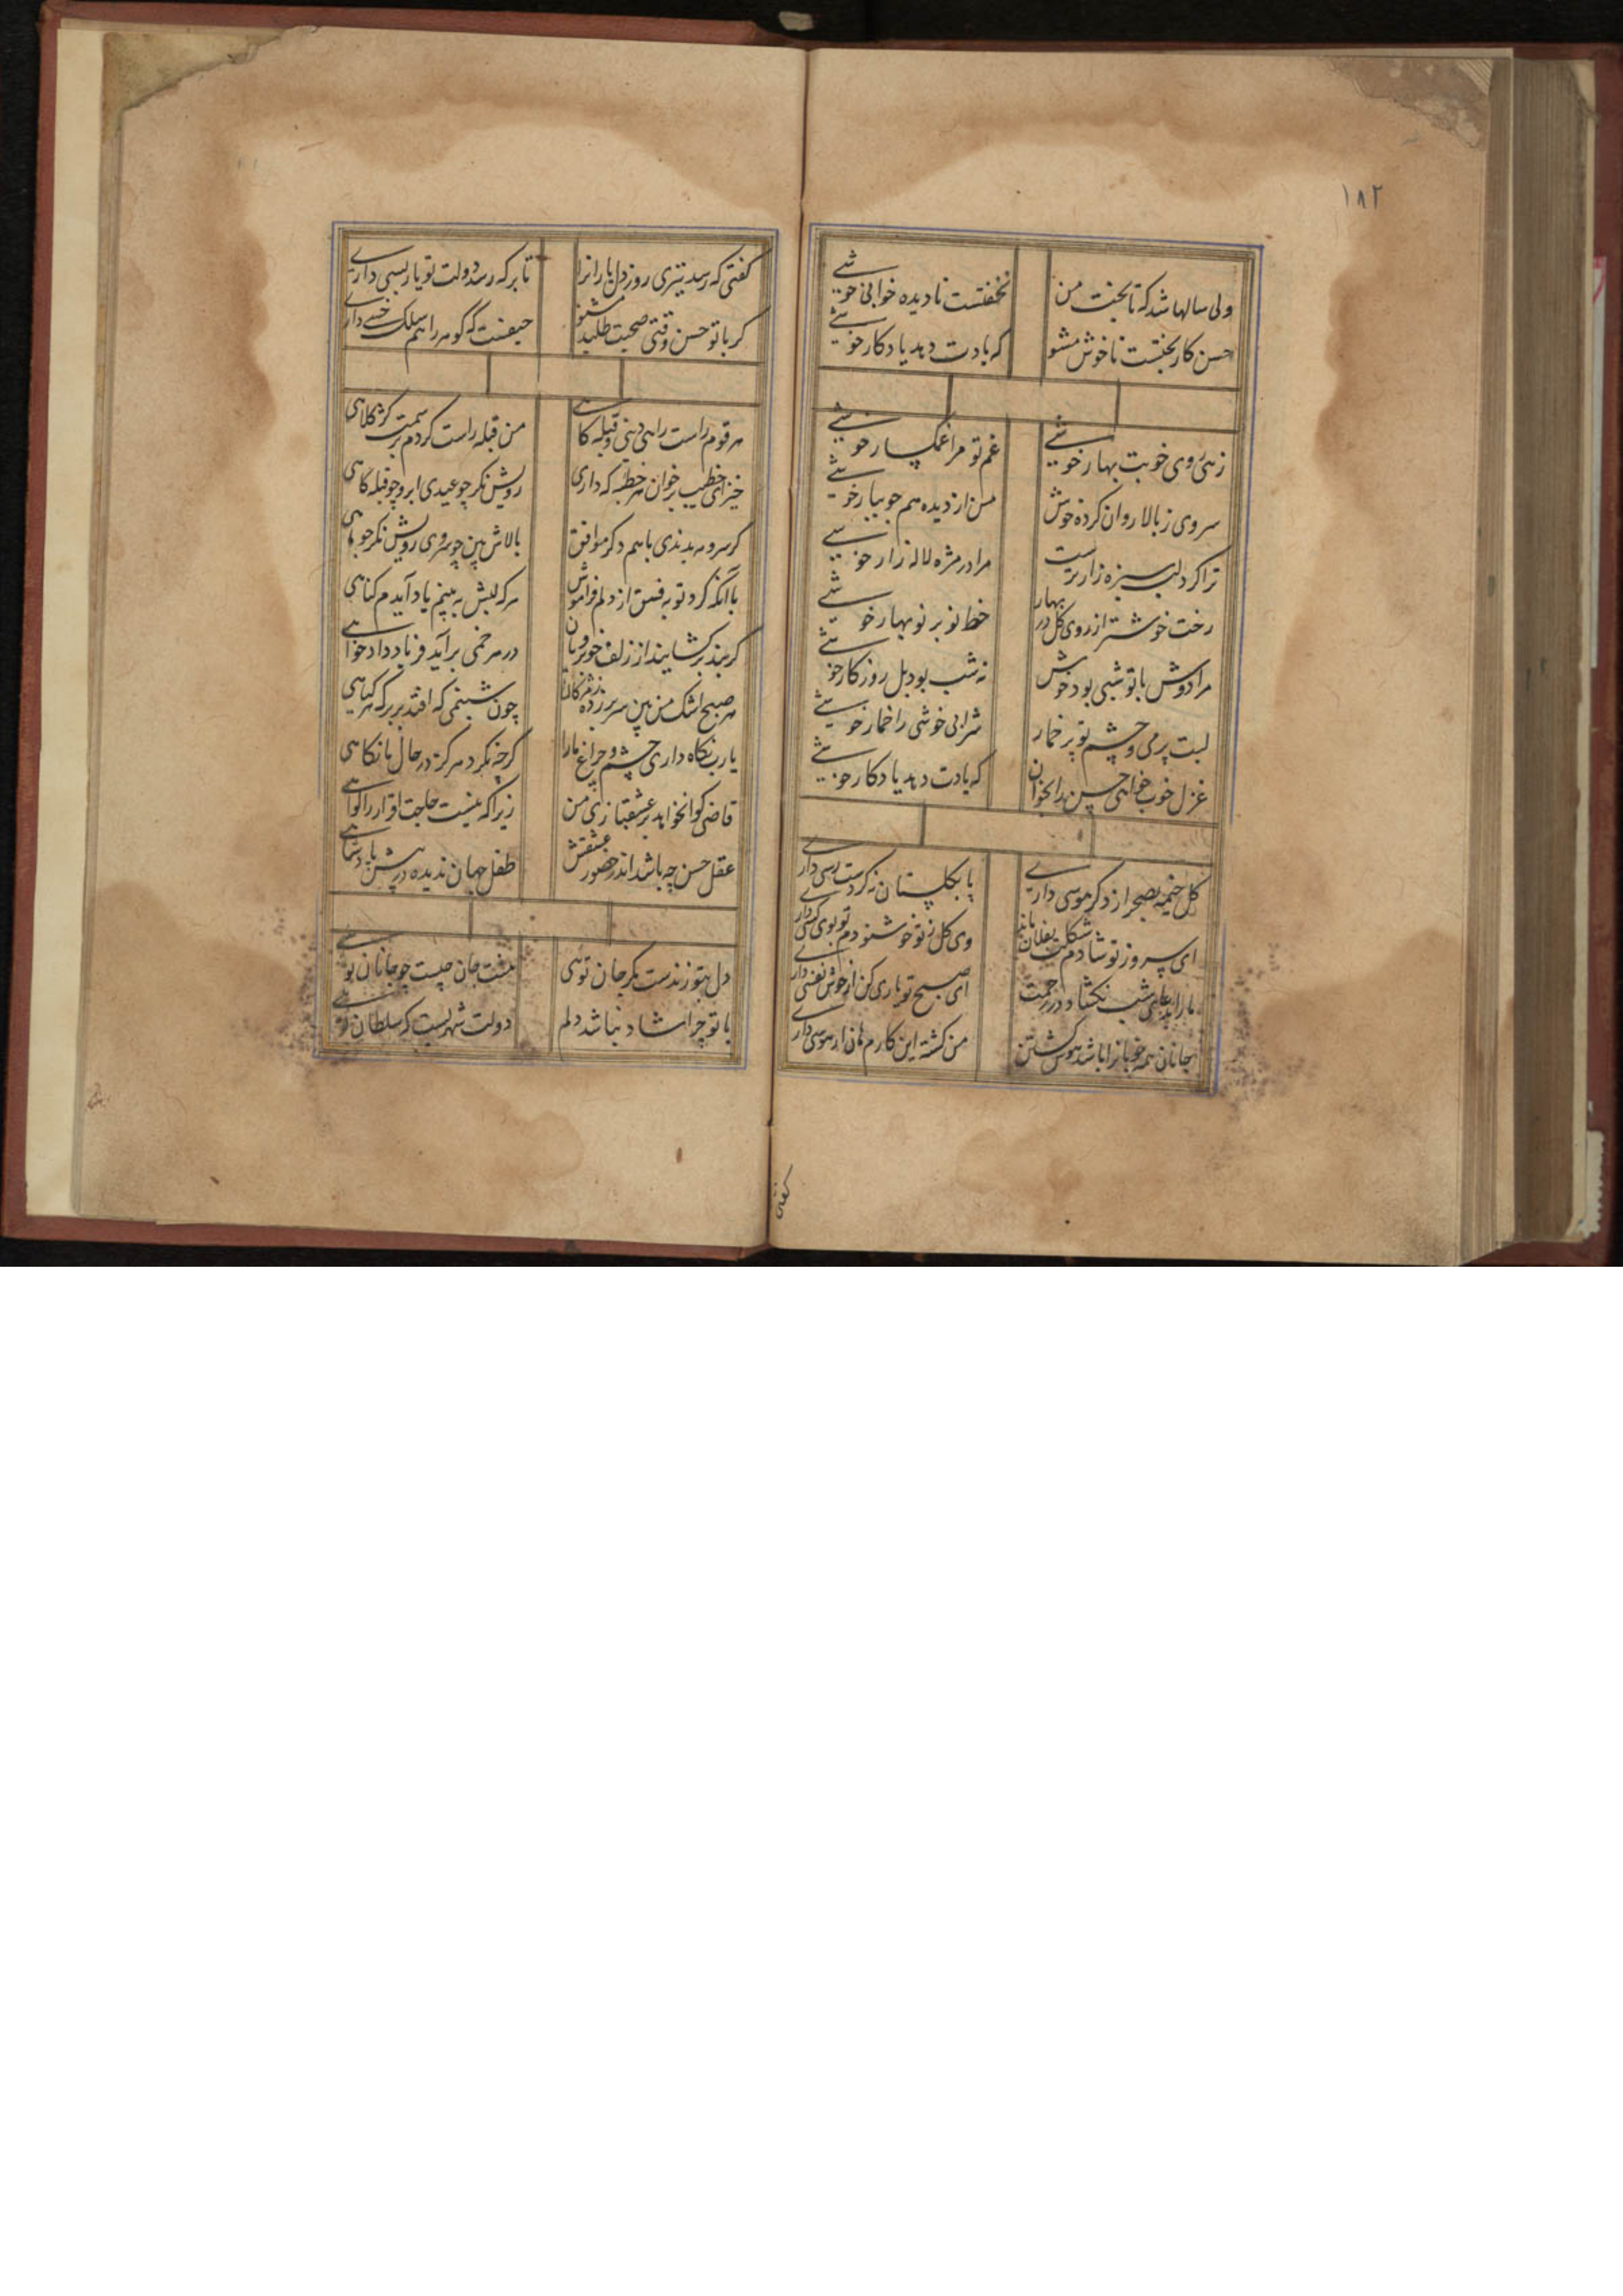 ۱۸۲
ولی سالها شد که تا بخت من نخفتست نادیده خوابی خوشی
حسن کار بختست ناخوش مشو که یادت دهد یادکار خوشی
زهی روی خوبت بهار خوشی غم تو مرا غمکسار خوشی
سروی ز بالا روان کرده خوش من از دیده هم جویبار خوشی
ترا کرد لب سبزه زار ترست مرا در مژه لاله زار خوشی
رخت خوشتر از روی کل در بهار خط نو بر نوبهار خوشی
مرا دوش با تو شبی بود خوش نه شب بود بل روزکار خوشی
لبت پر می و چشم تو پر خمار شرابی خوشی را خمار خوشی
غزل خوب خواهی حسن را بخوان که یادت دهد یادکار خوشی
کل خیمه بصحرا زد کر موسی داری پا بکلستان نه کر دست رسی داری
ای پیروز تو شادم شکلت بفلان ماند وی کل ز تو خوشنودم تو بوی کسی داری
ما را بدعای شب نکشاد در رحمت ای صبح تو یاری کن ار خوش نفسی داری
جانان همه خوبان را باشد هوس کشتن من کشته این کارم هان ار هوسی داری
کفتی که
کفتی که رسد تیری روزی دل یاران را تا بر که رسد دولت تو یار بسی داری
کر با تو حسن وقتی صحبت طلبد مشنو حیفست که کوهر را هم سلک خسی داری
هر قوم راست راهی دینی و قبله کاهی من قبله راست کردم بر سمت کژ کلاهی
خیز ای خطیب بر خوان هر خطبه که داری رویش نکر چو عیدی ابرو چو قبله کاهی
کر سرو مه بدیدی با هم دکر موافق بالاش بین چو سروی رویش نکر چو ماهی
با آنکه کرد توبه فسق از دلم فراموش هر که لبش به بینم یاد آیدم کناهی
کر بند بر کشایند از زلف خوبرویان در هر خمی برآید فریاد دادخواهی
هر صبح اشک من بین سر بر زده ز مژکان چون شبنمی که افتد بر برک هر کیاهی
یا رب نکاه داری چشم و چراغ ما را کر چه نکرد هرکز در حال ما نکاهی
قاضی کوا نخواهد بر عشقبازی من زیرا که نیست حاجت اقرار را کواهی
عقل حسن چه باشد اندر حضور عشقش طفل جهان ندیده در پیش پادشاهی
دل بتو زندست مکر جان توئی جان چیست چو جانان توئی
با تو چرا شاد نباشد دلم دولت شهریست که سلطان توئی